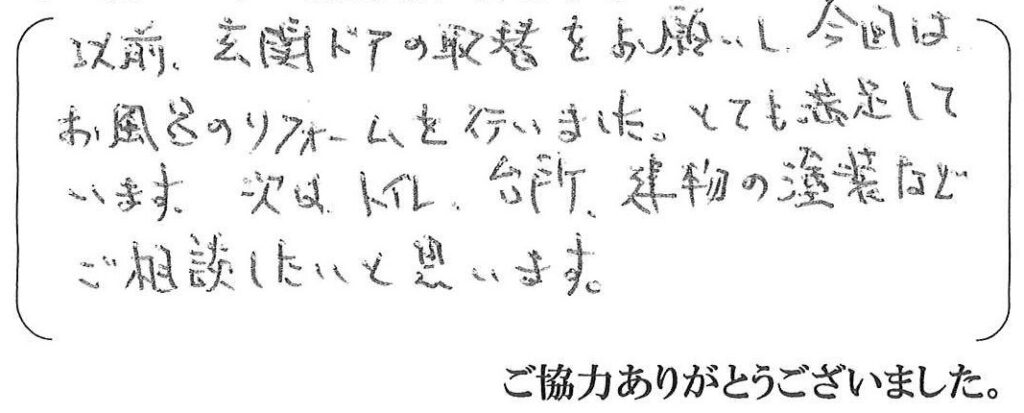 以前、玄関ドアの取替をお願いし、今回は、
お風呂のリフォームを行いました。とても満足して
います。次は、トイレ、台所、建物の塗装など
ご相談したいと思います。
ご協力ありがとうございました。